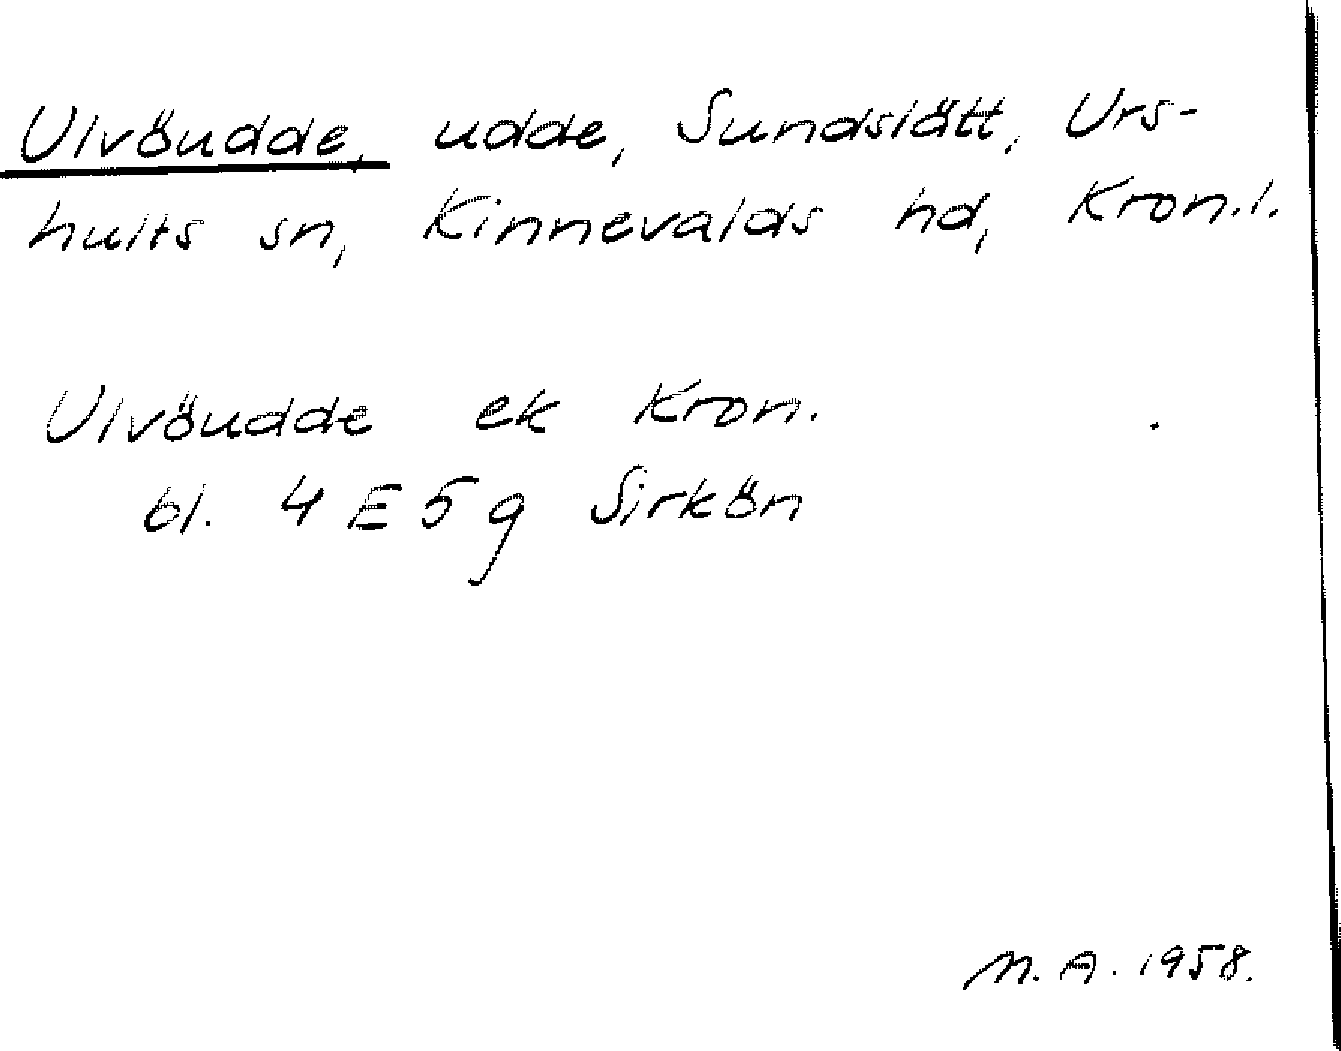 Ulvöudde, udde, Sundslätt, Urs-
hults sn, Kinnevalds hd, Kron.l.
Ulvöudde ek Kron.
bl. 4 E 5 g Sirkön
M.A. 1958.